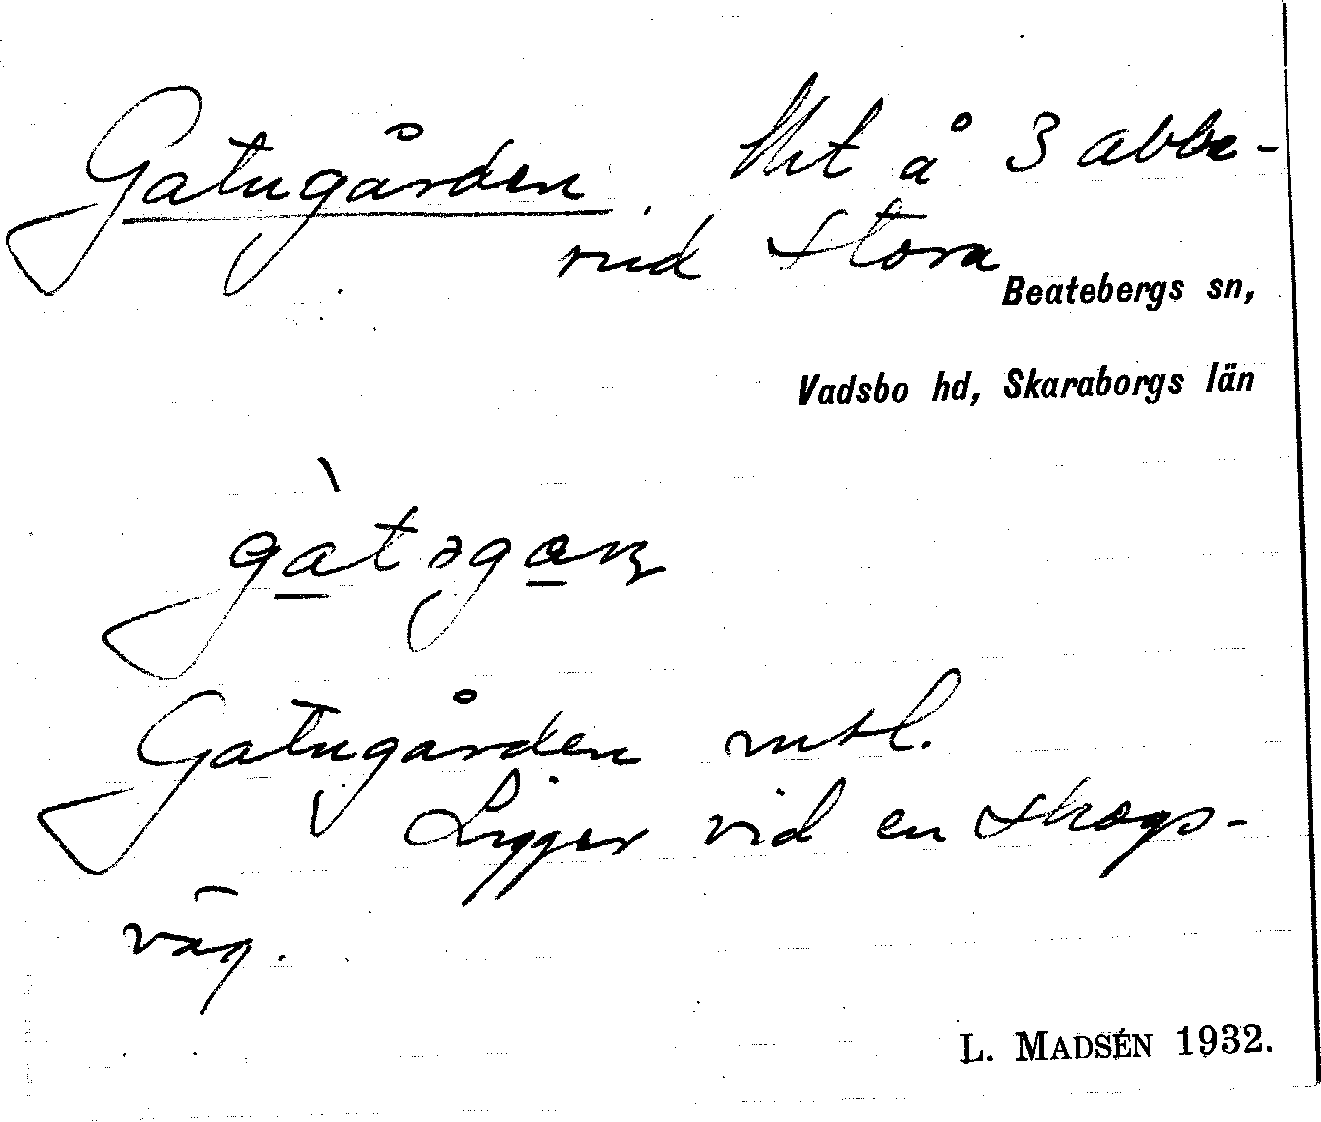 Gatugården. Hmt å 3 abbe-
rud Stora
Beatebergs sn,
Vadsbo hd, Skaraborgs län
Gatugården mtl.
Ligger vid en skogs-
väg.
L. MADSÉN 1932.